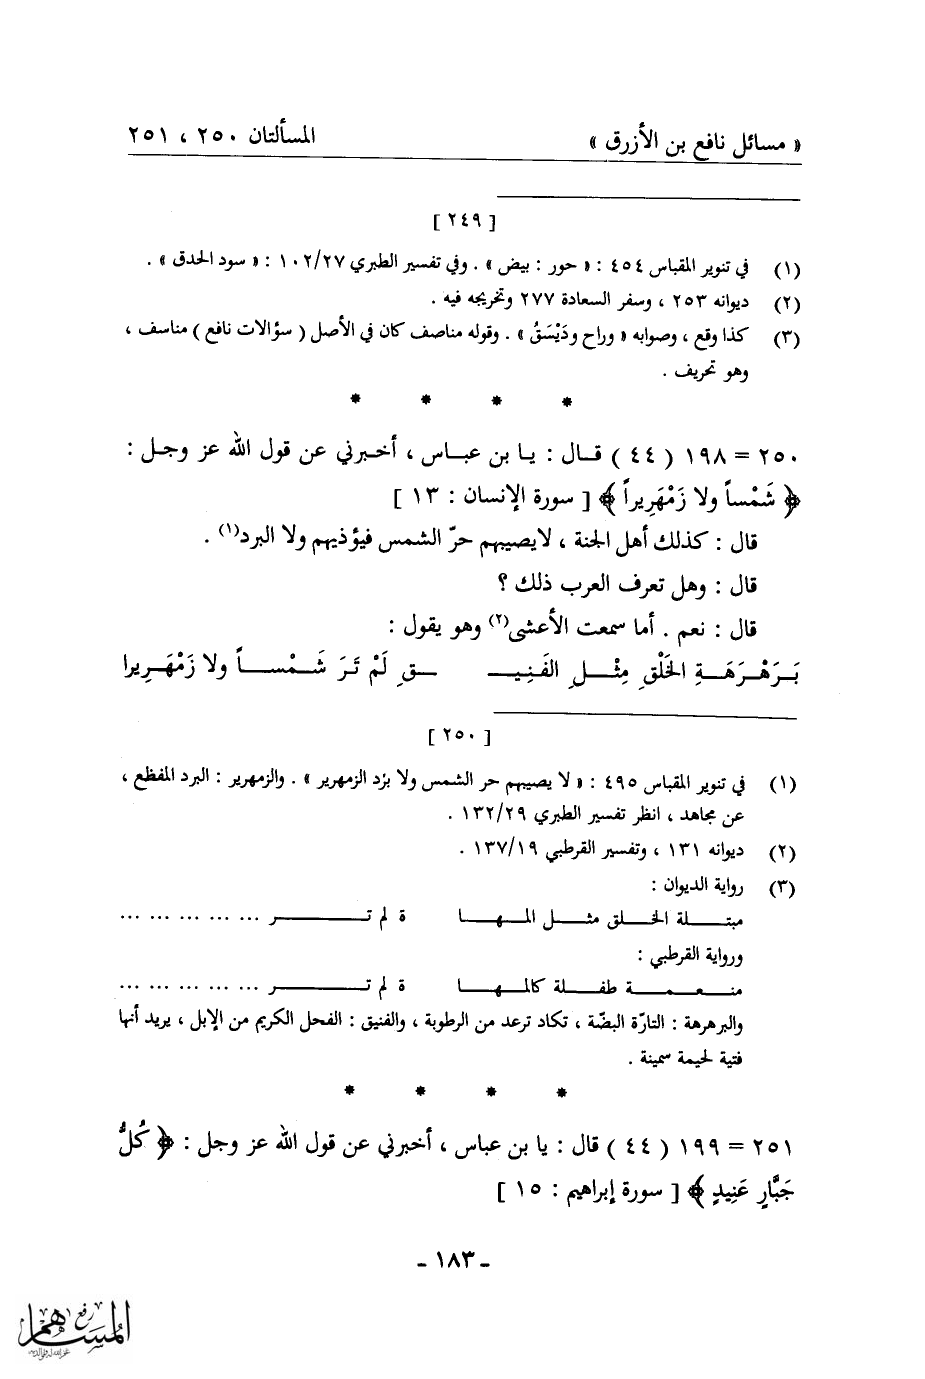 « مسائل نافع بن الأزرق » المسألتان ٢٥٠ ، ٢٥١
[ ٢٤٩ ]
(١) في تنوير المقباس ٤٥٤ : « حور : بيض » . وفي تفسير الطبري ١٠٢/٢٧ : « سود الحدق » .
(٢) ديوانه ٢٥٣ ، وسفر السعادة ٢٧٧ وتخريجه فيه .
(٣) كذا وقع ، وصوابه « وراح ودَيْسَقُ » . وقوله مناصف كان في الأصل ( سؤالات نافع ) مناسف ،
وهو تحريف .
* * * *
٢٥٠ = ١٩٨ ( ٤٤ ) قـال : يـا بن عبـاس ، أخـبرني عن قول الله عز وجـل :
﴿ شَمْساً ولا زَمْهَرِيراً ﴾ [ سورة الإنسان : ١٣ ]
قال : كذلك أهل الجنة ، لايصيبهم حرّ الشمس فيؤذيهم ولا البرد(١) .
قال : وهل تعرف العرب ذلك ؟
قال : نعم . أما سمعت الأعشى(٢) وهو يقول :
بَـرَهْـرَهَـةِ الخَلْقِ مِثْـلِ الفَنِيـ ـقِ لَمْ تَرَ شَـمْسـاً ولا زَمْهَـرِيرا
[ ٢٥٠ ]
(١) في تنوير المقباس ٤٩٥ : « لا يصيبهم حر الشمس ولا برْد الزمهرير » . والزمهرير : البرد المفظع ،
عن مجاهد ، انظر تفسير الطبري ١٣٢/٢٩ .
(٢) ديوانه ١٣١ ، وتفسير القرطبي ١٣٧/١٩ .
(٣) رواية الديوان :
مبتلـة الخـلق مثـل المـهـا ة لم تـر ... ... ... ... ...
ورواية القرطبي :
منـعـمـة طفـلة كالمـهـا ة لم تـر ... ... ... ... ...
والبرهرهة : التارّة البضّة ، تكاد ترعد من الرطوبة ، والفنيق : الفحل الكريم من الإبل ، يريد أنها
فتية لحيمة سمينة .
* * * *
٢٥١ = ١٩٩ ( ٤٤ ) قال : يا بن عباس ، أخبرني عن قول الله عز وجل : ﴿ كُلُّ
جَبَّارٍ عَنِيدٍ ﴾ [ سورة إبراهيم : ١٥ ]
ـ ١٨٣ ـ